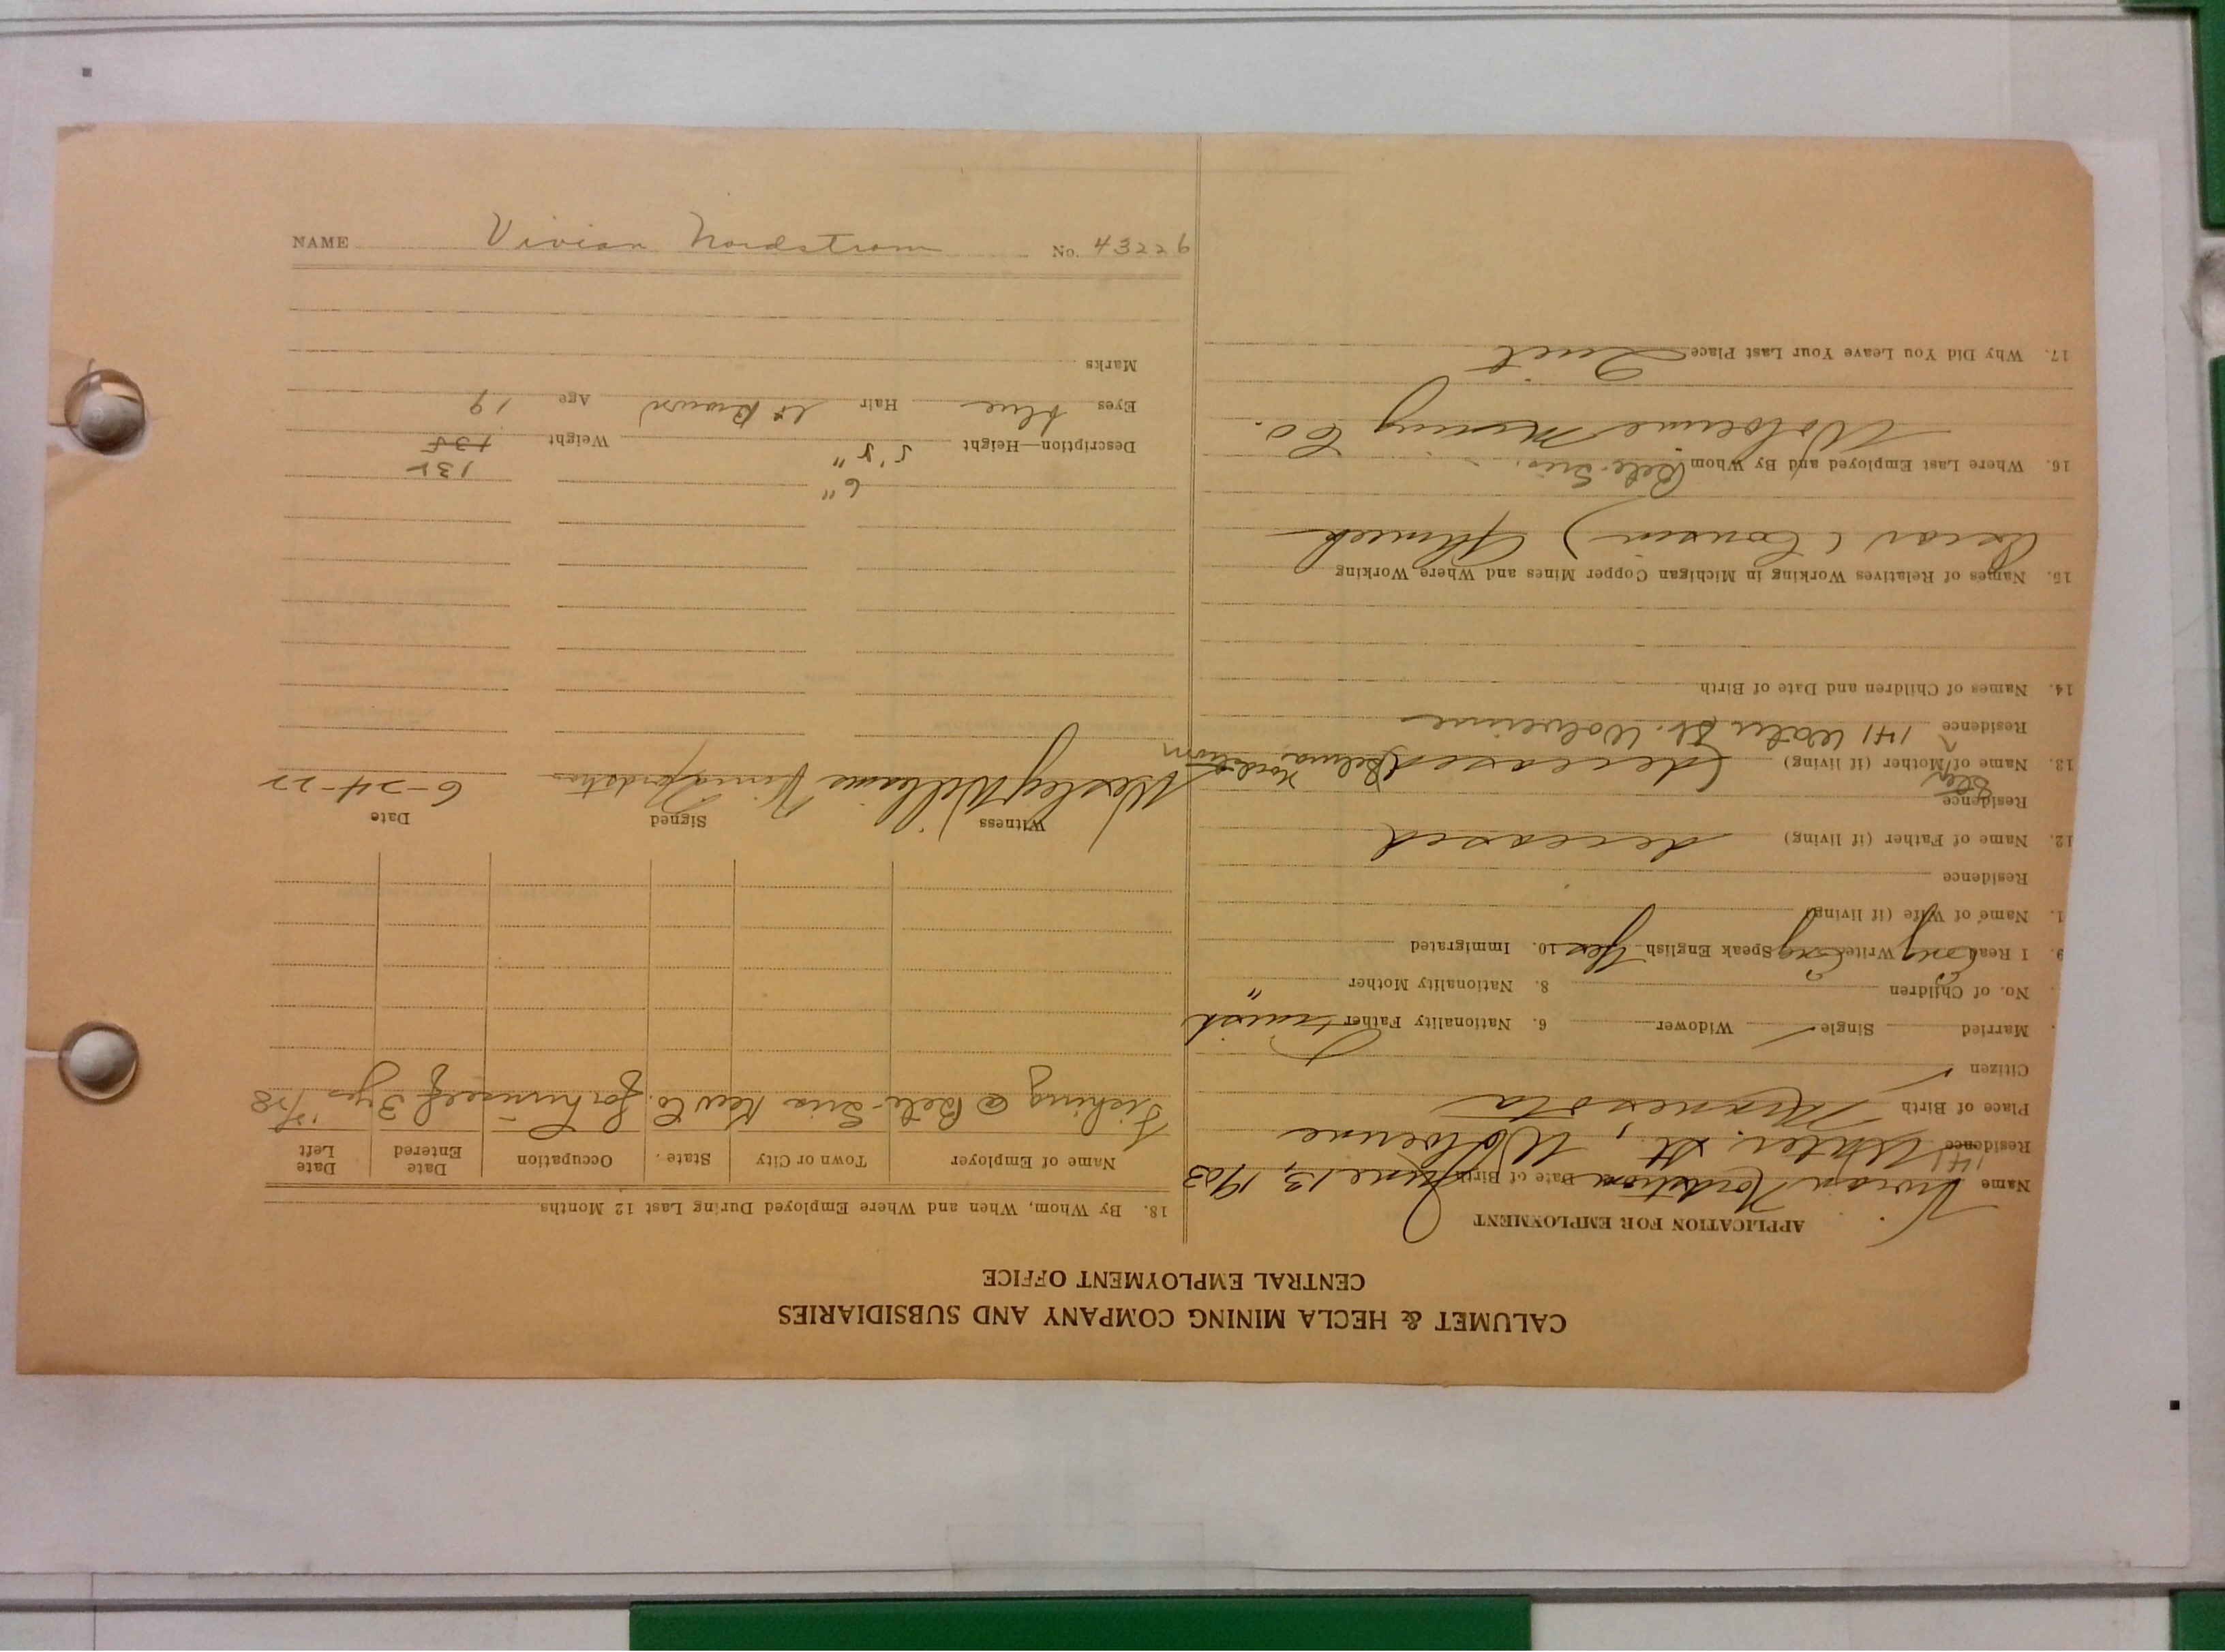 CALUMET & HECLA MINING COMPANY AND SUBSIDIARIES
CENTRAL EMPLOYMENT OFFICE
APPLICATION FOR EMPLOYMENT
Name Vivian Nordstrom Date of Birth June 13, 1903
Residence 141 Water St., Wolverine
Place of Birth Minnesota
Citizen ✓
Married Single ✓ Widower 6. Nationality Father Finnish
No. of Children 8. Nationality Mother "
9. I Read Eng Write Eng Speak English Yes 10. Immigrated
1. Name of Wife (if living)
Residence
12. Name of Father (if living) deceased
Residence
13. Name of Step Mother (if living) (deceased) Selma Nordstrom
Residence 141 Water St. Wolverine
14. Names of Children and Date of Birth
15. Names of Relatives Working in Michigan Copper Mines and Where Working
Oscar (Cousin) Ahmeek
16. Where Last Employed and By Whom Bete Gris.
Wolverine Mining Co.
17. Why Did You Leave Your Last Place Quit
18. By Whom, When and Where Employed During Last 12 Months
Name of Employer Town or City State. Occupation Date Entered Date Left
Fishing @ Bete-Gris Kew Co. for himself 3 yrs
Witness Signed Date
Wesley Williams Vivian Nordstrom 6-24-22
6" 135
Description—Height 5'8" Weight 135
Eyes blue Hair lt Brown Age 19
Marks
NAME Vivian Nordstrom No. 43226